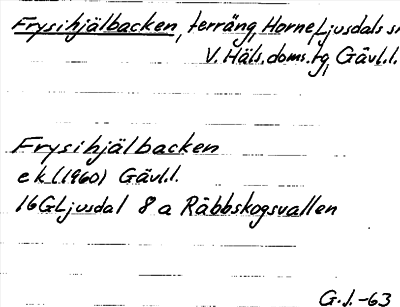 Frysihjälbacken, terräng, Horne, Ljusdals sn
V. Häls. doms. tg, Gävl. l.
Frysihjälbacken
ek (1960) Gävl. l.
16G Ljusdal 8 a Räbbskogsvallen
G.J.-63